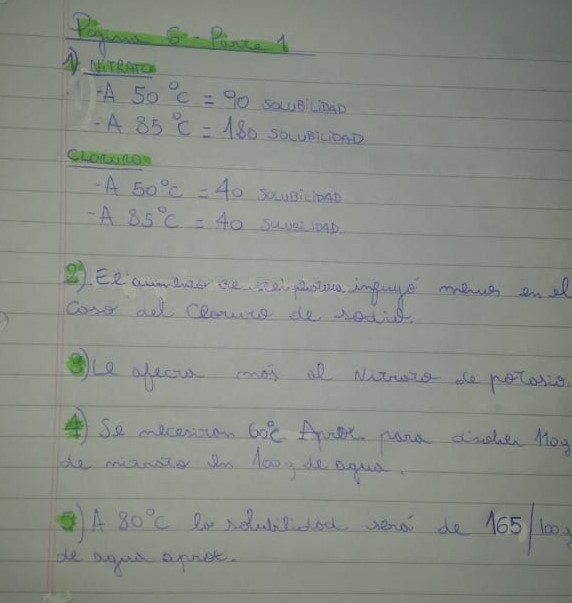 Página 6 - Parte 1
1) NITRATO
-A 50°C = 90 SOLUBILIDAD
-A 85°C = 180 SOLUBILIDAD
CLORURO
-A 50°C = 40 SOLUBILIDAD
-A 85°C = 40 SOLUBILIDAD
2). El aumento de temperatura influyó menos en el
caso del Cloruro de sodio.
3) Le afecta más al Nitrato de potasio.
4) Se necesitan 60°C Aprox. para disolver 110g
de nitrato en 100g de agua.
5) A 80°C la solubilidad será de 165/100g
de agua aprox.